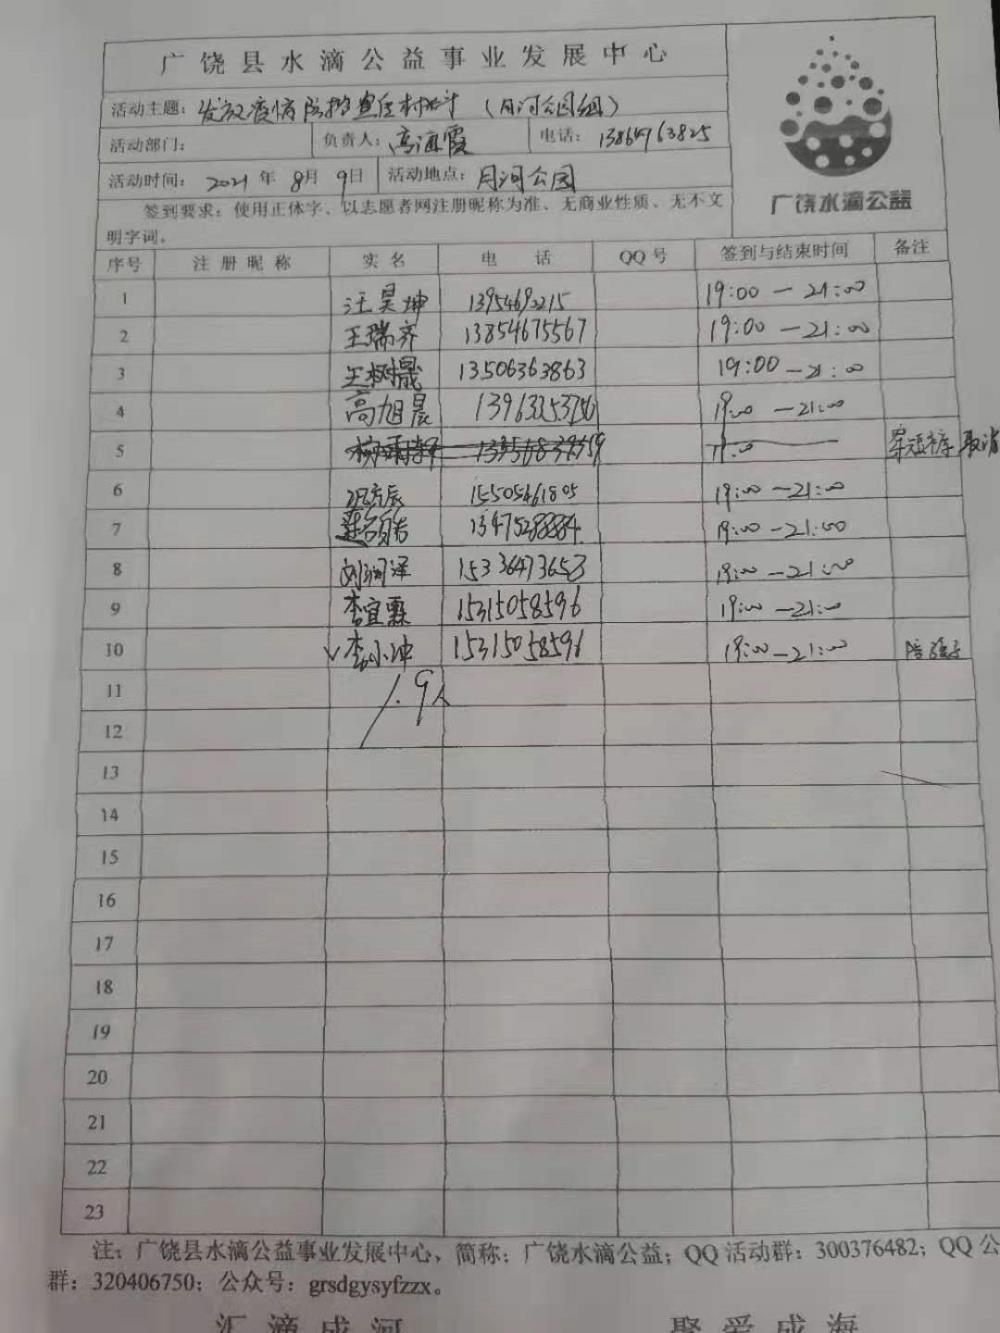 广饶县水滴公益事业发展中心
活动主题：发放疫情防控宣传（月河公园组）
活动部门： 负责人：高海霞 电话：13864763825
活动时间：2021年8月9日 活动地点：月河公园
签到要求：使用正体字、以志愿者网注册昵称为准、无商业性质、无不文
明字词。
广饶水滴公益
序号 注册昵称 实名 电话 QQ号 签到与结束时间 备注
1 汪昊坤 13954692215 19:00—21:00
2 王瑞齐 13854675567 19:00—21:00
3 王树晟 13506363863 19:00—21:00
4 高旭晨 19:00—21:00
5 19:00 穿短裤 取消
6 15505461805 19:00—21:00
7 19:00—21:00
8 刘润泽 15336473653 19:00—21:00
9 李宜霖 15315058596 19:00—21:00
10 √李小冲 15315058596 19:00—21:00 陪孩子
11 9人
12
13
14
15
16
17
18
19
20
21
22
23
注：广饶县水滴公益事业发展中心，简称：广饶水滴公益；QQ活动群：300376482；QQ公
群：320406750；公众号：grsdgysyfzzx。
汇滴成河 聚爱成海